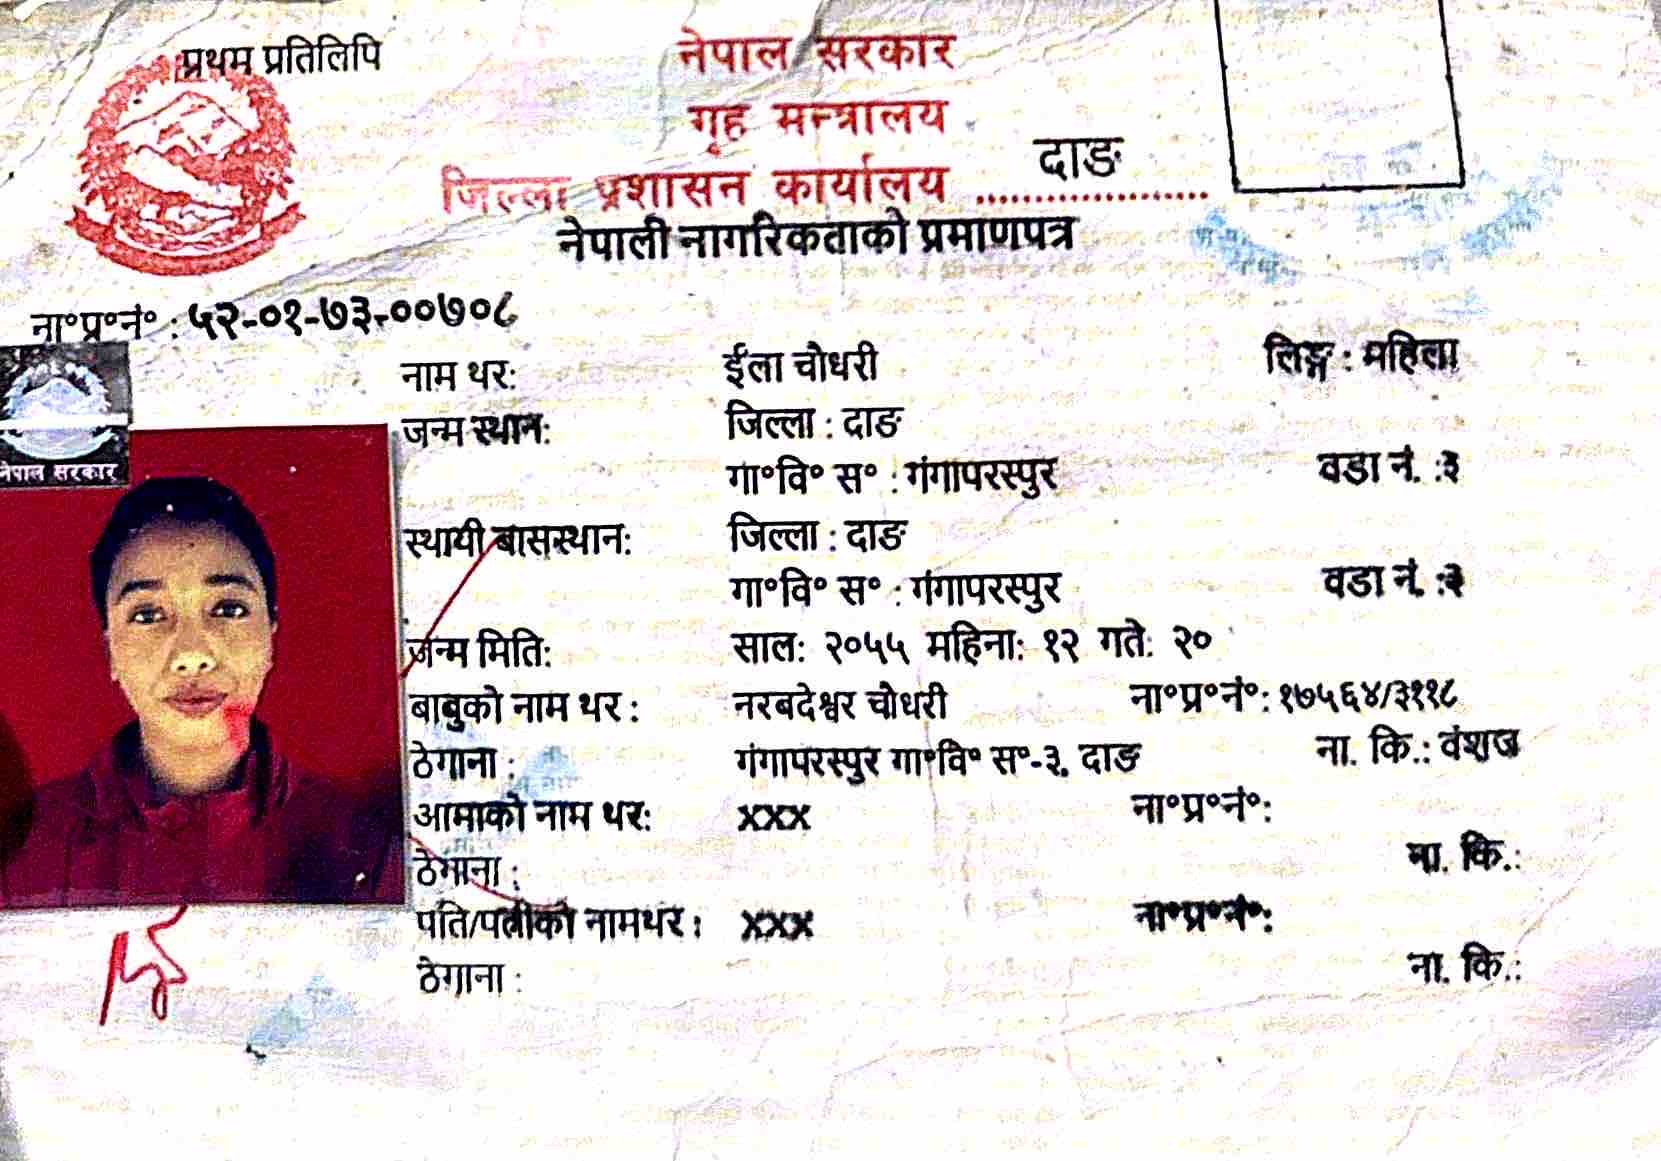 प्रथम प्रतिलिपि
नेपाल सरकार
गृह मन्त्रालय
जिल्ला प्रशासन कार्यालय .................... दाङ
नेपाली नागरिकताको प्रमाणपत्र
ना॰प्र॰नं॰ : ५२-०१-७३-००७०८
नेपाल सरकार
नाम थर: ईला चौधरी लिङ्ग : महिला
जन्म स्थान: जिल्ला : दाङ
गा॰वि॰ स॰ : गंगापरस्पुर वडा नं. :३
स्थायी बासस्थान: जिल्ला : दाङ
गा॰वि॰ स॰ : गंगापरस्पुर वडा नं. :३
जन्म मिति: साल: २०५५ महिना: १२ गते: २०
बाबुको नाम थर : नरबदेश्वर चौधरी ना॰प्र॰नं॰: १७५६४/३११८
ठेगाना : गंगापरस्पुर गा॰वि॰ स॰-३, दाङ ना. कि.: वंशज
आमाको नाम थर: xxx ना॰प्र॰नं॰:
ठेगाना : ना. कि.:
पति/पत्नीको नामथर : xxx ना॰प्र॰नं॰:
ठेगाना : ना. कि.: